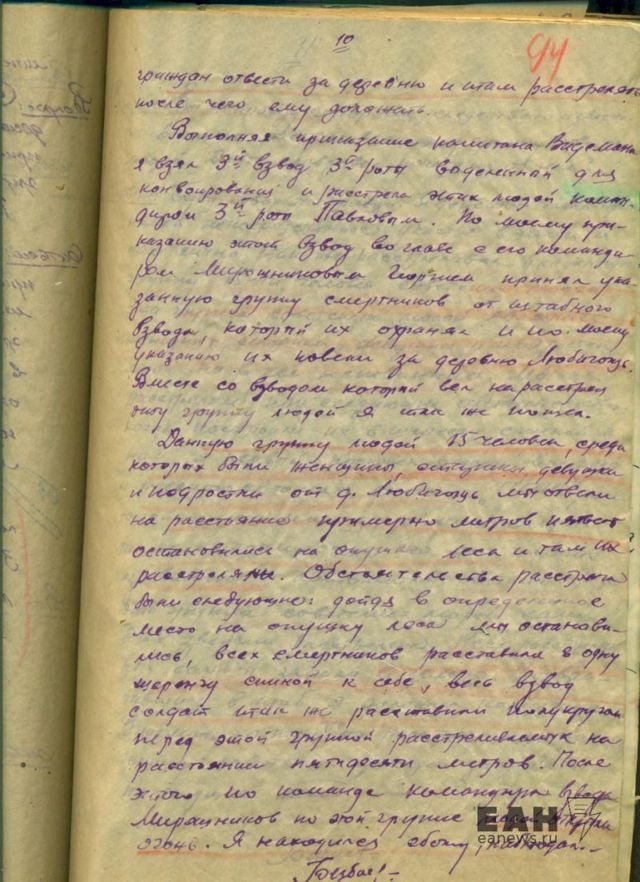 10
94
граждан отвести за деревню и там расстрелять
после чего ему доложить.
Выполняя приказание капитана Видемана
я взял 3й взвод 3й роты выделенный для
конвоирования и расстрела этих людей коман-
диром 3й роты Павловым. По моему при-
казанию этот взвод во главе с его команди-
ром Мирошниковым Георгием принял ука-
занную группу смертников от штабного
взвода, который их охранял и по моему
указанию их повели за деревню Любигощь.
Вместе со взводом который вел на расстрел
эту группу людей я так же пошел.
Данную группу людей 15 человек, среди
которых были женщины, девушки
и подростки от д. Любигощь мы отвели
на расстояние примерно метров
остановились на опушке леса и там их
расстреляны. Обстоятельства расстрела
были следующие: дойдя в определенное
место на опушку леса мы останови-
лись, всех смертников расставили в одну
шеренгу спиной к себе, весь взвод
солдат так же расставили полукругом
перед этой группой расстреливаемых на
расстоянии пятидесяти метров. После
этого по команде командира взвода
Мирошников по этой группе людей
огонь. Я находился сбоку, наблюдал.-
ЕАН
eanews.ru